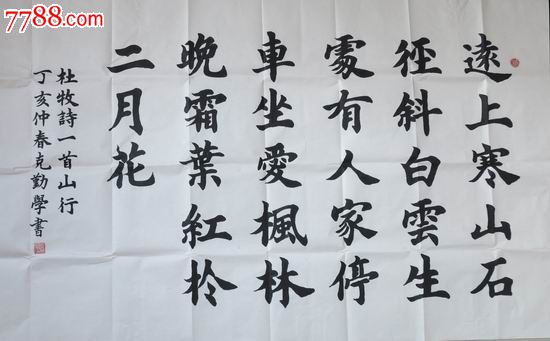 7788.com
遠上寒山石
徑斜白雲生
處有人家停
車坐愛楓林
晚霜葉紅扵
二月花
杜牧詩一首山行
丁亥仲春克勤學書